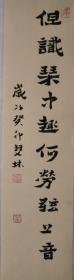 但識琴中趣何勞弦上音
歲次癸卯雙林